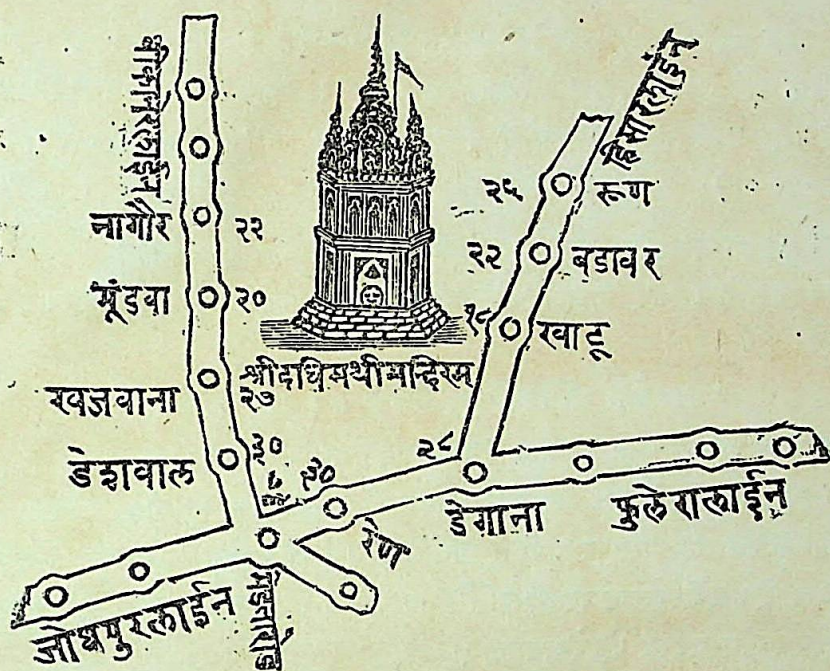 बीकानेरलाईन
हिसारलाईन
नागौर २२
मूंडवा २०
खजवाना २७
डेशवाल ३०
श्रीदधिमथीमन्दिरम्
२६ रूण
२२ बडावर
१८ खाटू
२८
डेगाना
३०
रेण
फुलेरालाईन
जोधपुरलाईन
मेडतारोड